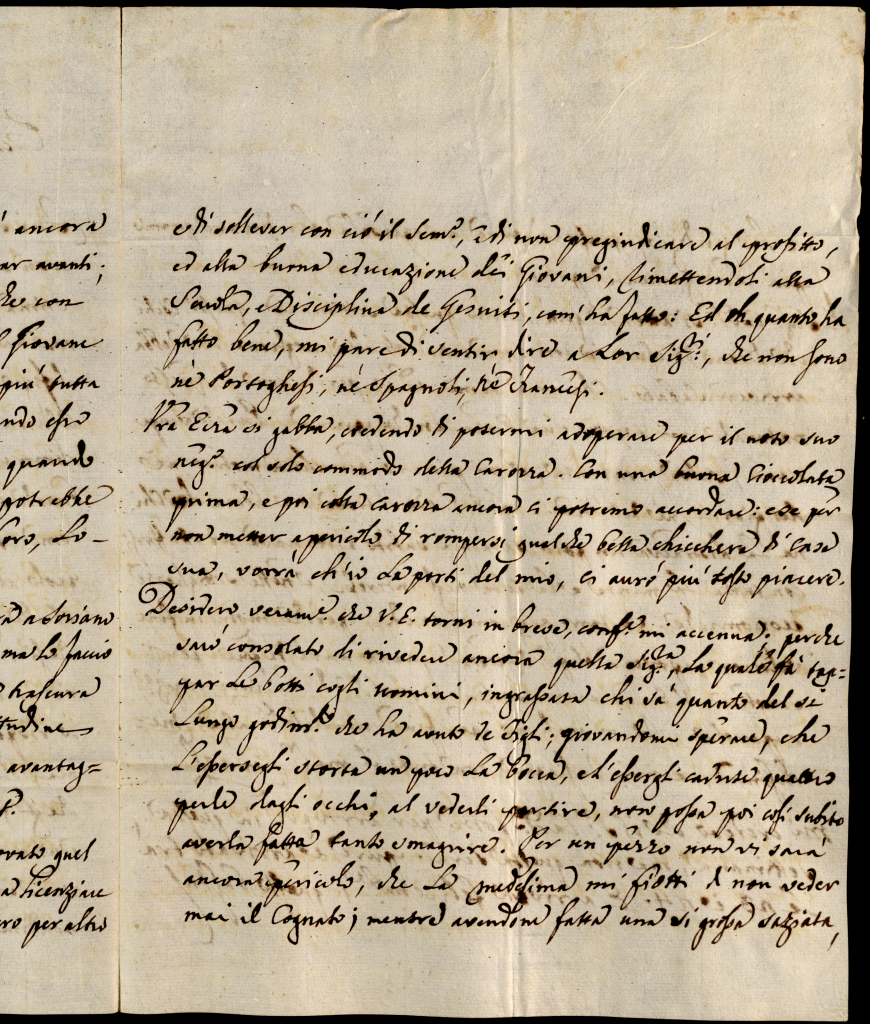 ancora
ar avanti;
che con
Giovane
più tutta
ndo esse
quando
potrebbe
loro, Lo-
a a Soriano
ma lo faccio
trascura
tudine
avantag=
P.
ovato quel
a licenziare
ro per altro
e di sollevar con ciò il Sem.º, e di non pregiudicare al profitto,
ed alla buona educazione dei Giovani, rimettendoli alla
Scuola, e Disciplina de Gesuiti, com'ha fatto: Ed oh quanto ha
fatto bene, mi pare di sentir dire a Lor Sig.ri, che non sono
nè Portoghesi, nè Spagnoli, nè Francesi.
Vra Ecza si gabba, credendo di potermi adoperare per il noto suo
neg.º col solo commodo della Carozza. Con una buona Cioccolata
prima, e poi colla carozza ancora ci potremo accordare: e se per
non metter a pericolo di rompersi qualche bella chicchera di Casa
sua, vorrà ch'io La porti del mio, ci aurò più tosto piacere.
Desidero veram.e che V. E. torni in breve, conf.e mi accenna; perche
sarò consolato di rivedere ancora quella Sig.ra, La quale fà tap=
par Le botti cogli uomini, ingrassata chi sà quanto del sì
Lungo godim.to che ha avuto de Figli; giovandomi sperare, che
L'essersegli storta un poco La bocca, e l'essergli cadute quattro
perle dagli occhi, al vederli partire, non possa poi così subito
averla fatta tanto smagrire. Per un pezzo non vi sarà
ancora pericolo, che La medesima mi fiotti di non veder
mai il Cognato; mentre avendone fatta una sì grossa saziata,